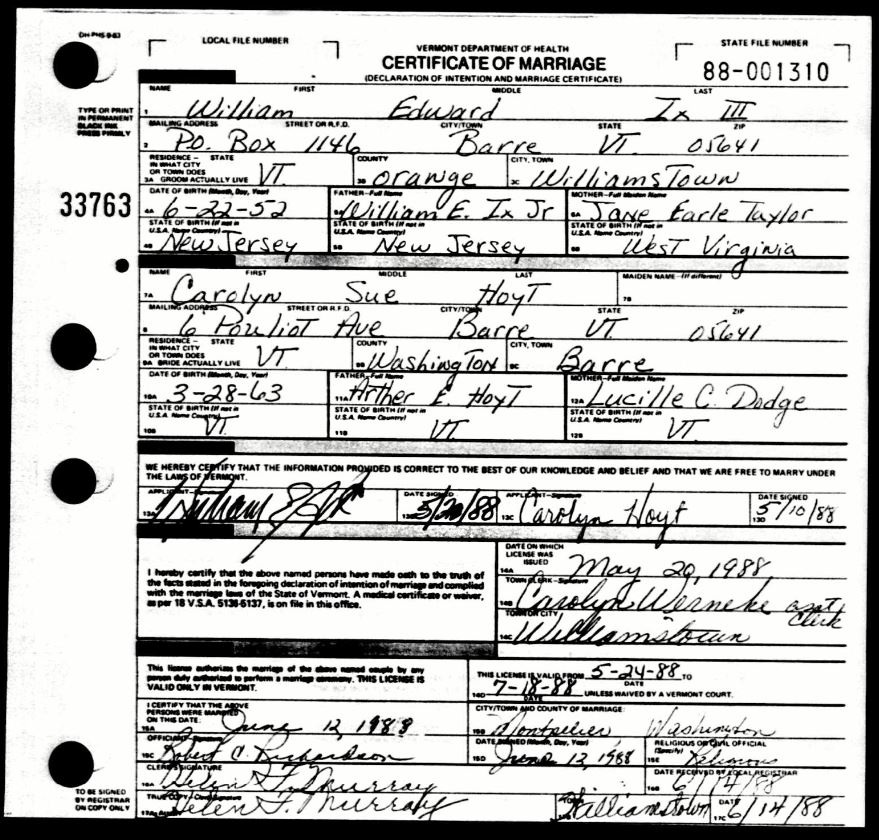 DH-PHS-9-83
LOCAL FILE NUMBER
VERMONT DEPARTMENT OF HEALTH
STATE FILE NUMBER
CERTIFICATE OF MARRIAGE
(DECLARATION OF INTENTION AND MARRIAGE CERTIFICATE)
88-001310
TYPE OR PRINT
IN PERMANENT
BLACK INK
PRESS FIRMLY
NAME FIRST MIDDLE LAST
1 William Edward Ix III
MAILING ADDRESS STREET OR R.F.D. CITY/TOWN STATE ZIP
2 P.O. Box 1146 Barre VT. 05641
RESIDENCE - STATE
IN WHAT CITY
OR TOWN DOES
3A GROOM ACTUALLY LIVE VT.
COUNTY
3B Orange
CITY, TOWN
3C Williamstown
33763
DATE OF BIRTH (Month, Day, Year)
4A 6-22-52
FATHER-Full Name
5A William E. Ix Jr
MOTHER-Full Maiden Name
6A Jane Earle Taylor
STATE OF BIRTH (If not in
U.S.A. Name Country)
4B New Jersey
STATE OF BIRTH (If not in
U.S.A. Name Country)
5B New Jersey
STATE OF BIRTH (If not in
U.S.A. Name Country)
6B West Virginia
NAME FIRST MIDDLE LAST
MAIDEN NAME-(If different)
7A Carolyn Sue Hoyt
7B
MAILING ADDRESS STREET OR R.F.D. CITY/TOWN STATE ZIP
8 6 Pouliot Ave Barre VT. 05641
RESIDENCE - STATE
IN WHAT CITY
OR TOWN DOES
9A BRIDE ACTUALLY LIVE VT
COUNTY
9B Washington
CITY, TOWN
9C Barre
DATE OF BIRTH (Month, Day, Year)
10A 3-28-63
FATHER-Full Name
11A Arther E. Hoyt
MOTHER-Full Maiden Name
12A Lucille C. Dodge
STATE OF BIRTH (If not in
U.S.A. Name Country)
10B VT.
STATE OF BIRTH (If not in
U.S.A. Name Country)
11B VT.
STATE OF BIRTH (If not in
U.S.A. Name Country)
12B VT.
WE HEREBY CERTIFY THAT THE INFORMATION PROVIDED IS CORRECT TO THE BEST OF OUR KNOWLEDGE AND BELIEF AND THAT WE ARE FREE TO MARRY UNDER
THE LAWS OF VERMONT.
APPLICANT-Signature
13A
DATE SIGNED
13B 5/20/88
APPLICANT-Signature
13C Carolyn Hoyt
DATE SIGNED
13D 5/10/88
I hereby certify that the above named persons have made oath to the truth of
the facts stated in the foregoing declaration of intention of marriage and complied
with the marriage laws of the State of Vermont. A medical certificate or waiver,
as per 18 V.S.A. 5136-5137, is on file in this office.
DATE ON WHICH
LICENSE WAS
ISSUED
14A May 20, 1988
TOWN CLERK-Signature
14B Carolyn Werneke asst.
Clerk
TOWN OR CITY
14C Williamstown
This license authorizes the marriage of the above named couple by any
person duly authorized to perform a marriage ceremony. THIS LICENSE IS
VALID ONLY IN VERMONT.
THIS LICENSE IS VALID FROM 5-24-88 TO
DATE
14D 7-18-88 UNLESS WAIVED BY A VERMONT COURT.
DATE
I CERTIFY THAT THE ABOVE
PERSONS WERE MARRIED
ON THIS DATE:
15A June 12, 1988
CITY/TOWN AND COUNTY OF MARRIAGE:
15B Montpelier Washington
15C Robert C. Richardson
DATE SIGNED (Month, Day, Year)
15D June 12, 1988
RELIGIOUS OR CIVIL OFFICIAL
(Specify)
15E Religious
CLERK'S SIGNATURE
16A Helen F. Murray
DATE RECEIVED BY LOCAL REGISTRAR
16B 6/14/88
TO BE SIGNED
BY REGISTRAR
ON COPY ONLY
17A Helen F. Murray
Williamstown
DATE
17C 6/14/88